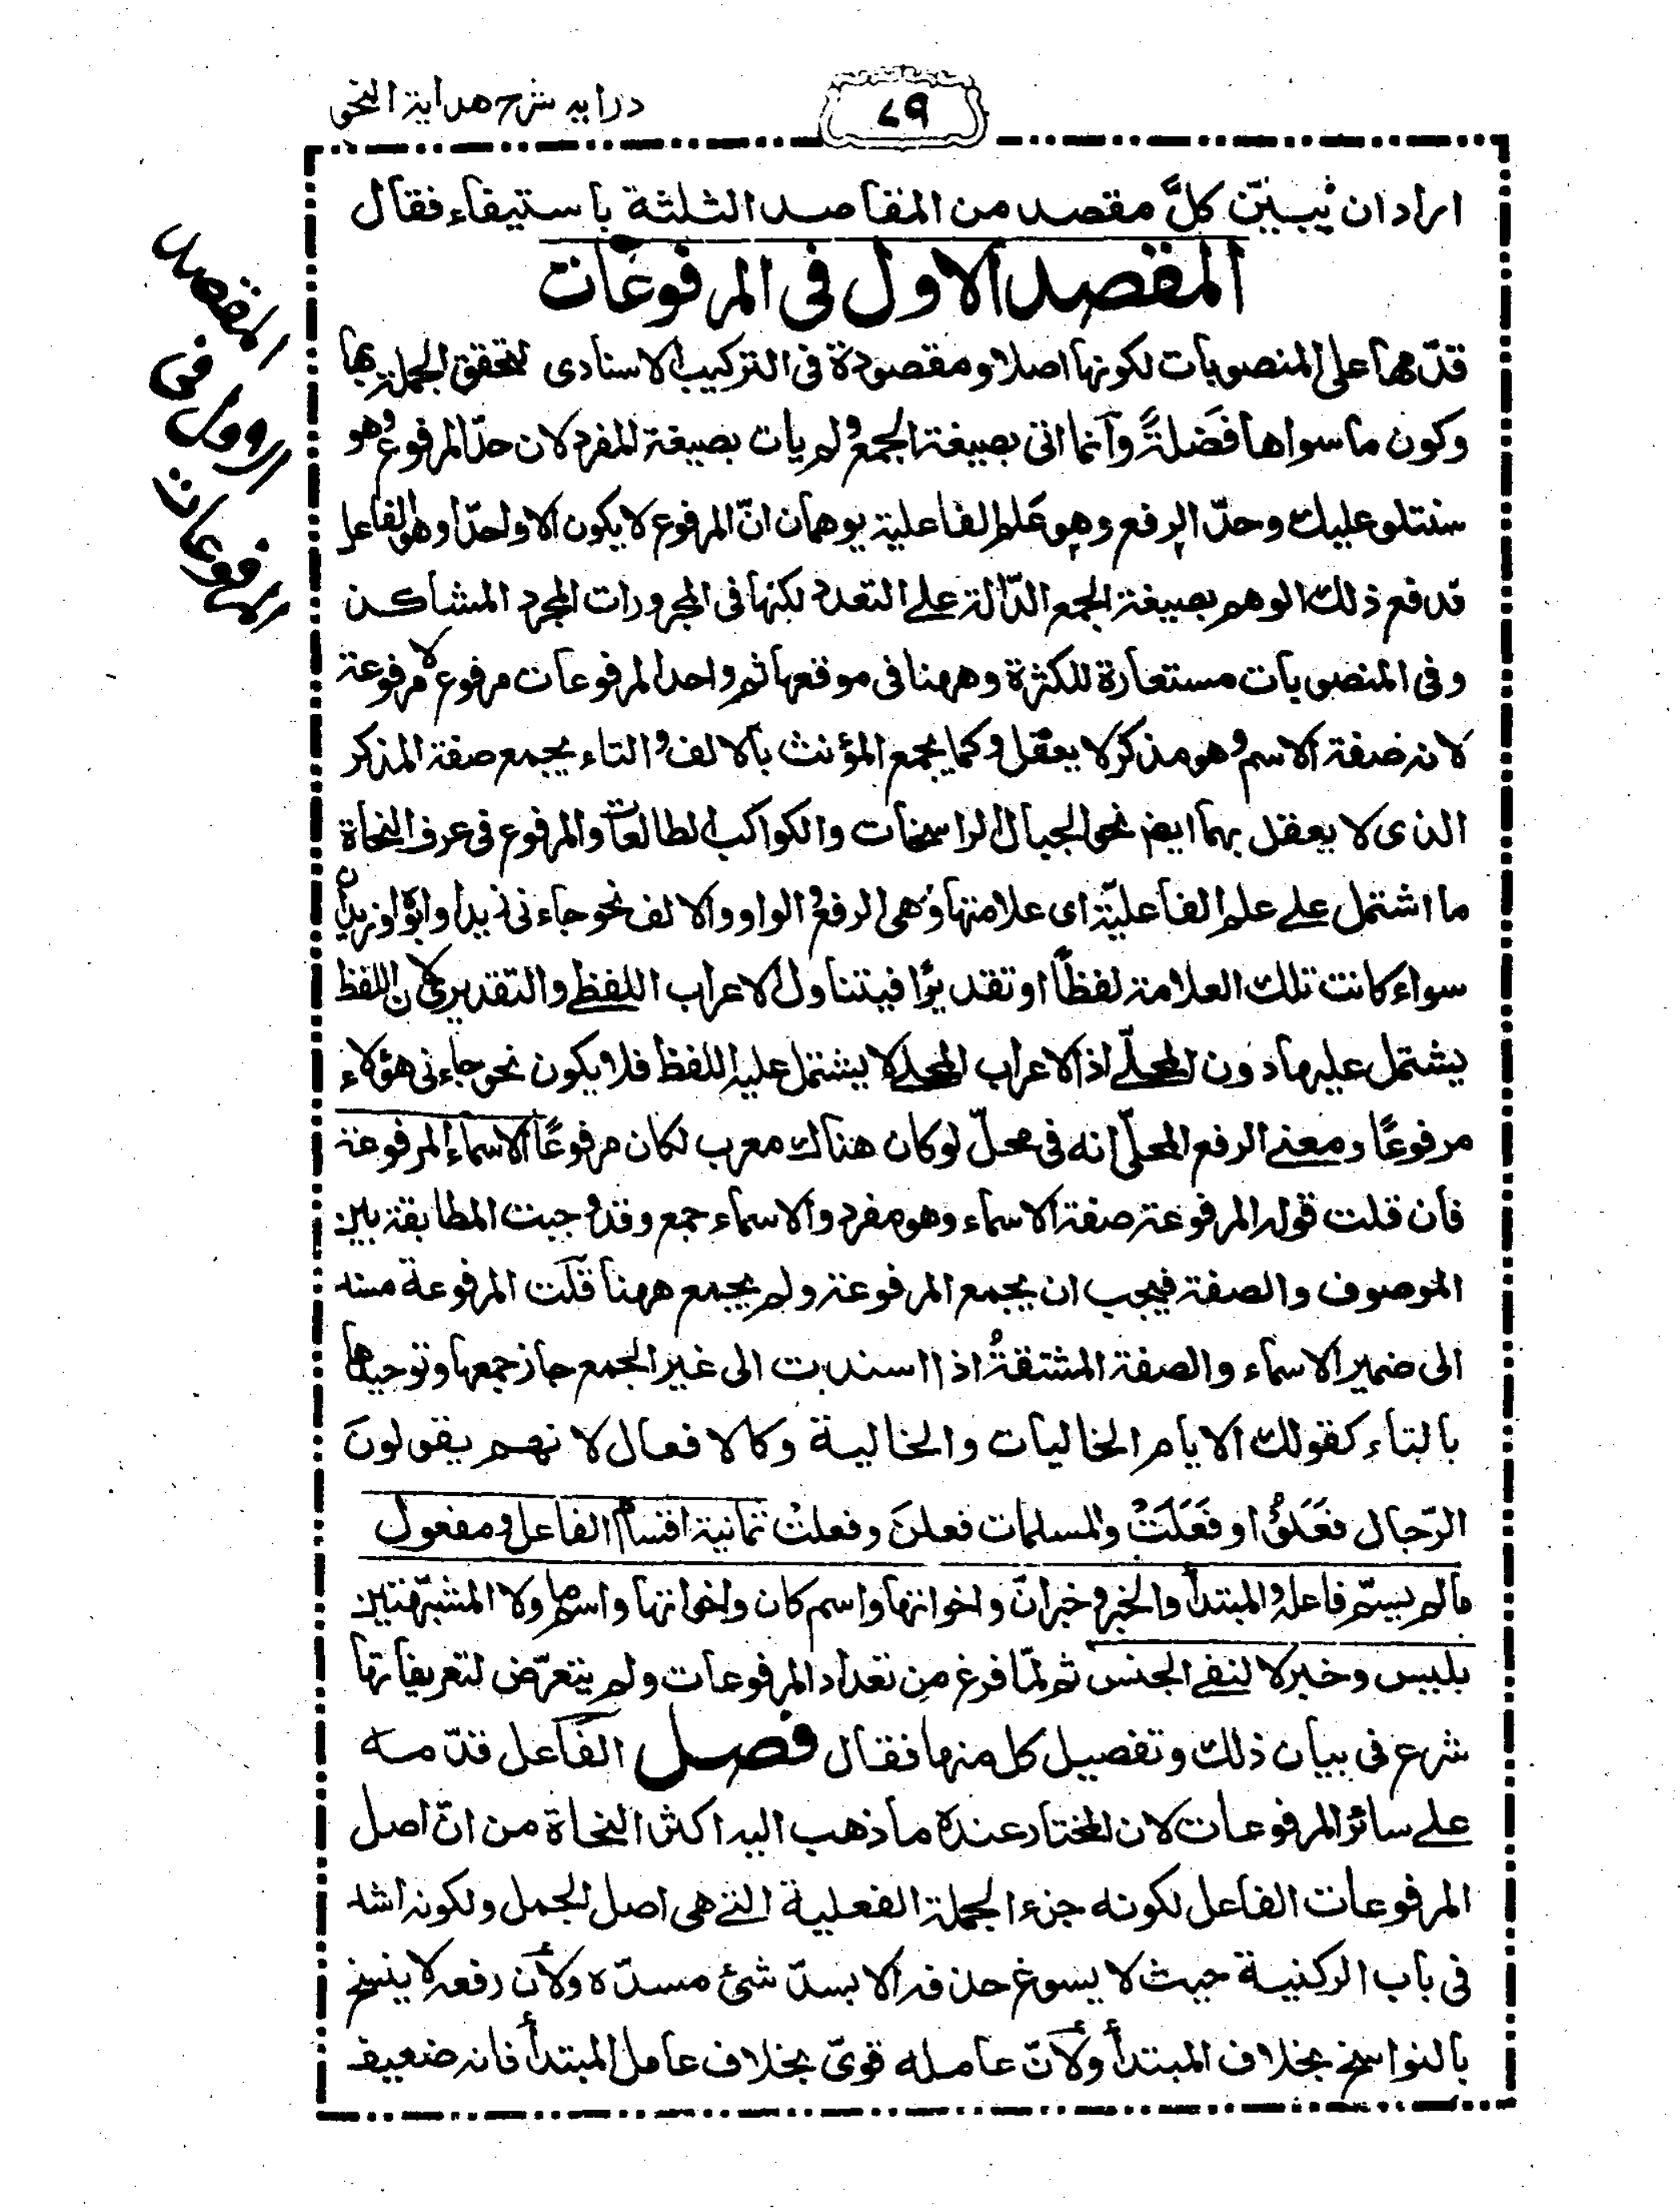 درايه شرح هداية النحو
٧٩
اراد ان يُبيّن كلَّ مقصد من المقاصد الثلثة باستيفاء فقال
المقصد الاول فى المرفوعات
قدّمها على المنصوبات لكونها اصلا ومقصودة فى التركيب الاسنادى لتحقق الجملة بها
وكون ما سواها فَضلةً وآنما اتى بصيغة الجمع ولم يات بصيغة المفرد لان حدّ المرفوع وهو
سنتلو عليك وحدّ الرفع وهو عَلم الفاعلية يوهمان انّ المرفوع لا يكون الا واحدًا وهو الفاعل
فدفع ذلك الوهم بصيغة الجمع الدّالة على التعدد لكنها فى المجرورات لمجرد المشاكلة
وفى المنصوبات مستعارة للكثرة وههنا فى موقعها ثم واحد المرفوعات مرفوع لا مرفوعة
لانه صفة الاسم وهو مذكر لا يعقل وكما يجمع المؤنث بالالف والتاء يجمع صفة المذكر
الذى لا يعقل بهما ايضا نحو الجبال الراسخات والكواكب الطالعات والمرفوع فى عرف النحاة
ما اشتمل على علم الفاعليّة اى علامتها وهى الرفع والواو والالف نحو جاءنى زيد وابوه او زيدان
سواء كانت تلك العلامة لفظًا او تقديرًا فيتناول الاعراب اللفظى والتقديرى لان اللفظ
يشتمل عليها دون المحلّى اذ الاعراب المحلى لا يشتمل عليه اللفظ فلا يكون نحو جاءنى هؤلاء
مرفوعًا ومعنى الرفع المحلّى انه فى محلّ لو كان هناك معرب لكان مرفوعًا الاسماء المرفوعة
فان قلت قوله المرفوعة صفة الاسماء وهو مفرد والاسماء جمع وقد وجبت المطابقة بين
الموصوف والصفة فيجب ان يجمع المرفوعة ولم يجمع ههنا قلت المرفوعة مسند
الى ضمير الاسماء والصفة المشتقةُ اذا اسندت الى غير الجمع جاز جمعها وتوحيدها
بالتاء كقولك الايام الخاليات والخالية وكالافعال لانهم يقولون
الرّجال فعَلوُا او فَعَلَتْ والمسلمات فعلنَ وفعلتْ ثمانية اقسام الفاعل ومفعول
مالم يسمّ فاعله والمبتدأ والخبر وخبر انّ واخواتها واسم كان واخواتها واسم ما ولا المشبّهتين
بليس وخبر لا لنفى الجنس ثم لمّا فرغ من تعداد المرفوعات ولم يتعرّض لتعريفاتها
شرع فى بيان ذلك وتفصيل كل منها فقال فصل الفاعل قدّمه
على سائر المرفوعات لان المختار عنده ما ذهب اليه اكثر النحاة من انّ اصل
المرفوعات الفاعل لكونه جزء الجملة الفعلية التى هى اصل الجمل ولكونه اشد
فى باب الركنية حيث لا يسوغ حذفه الا بسدّ شئ مسدّه ولأن رفعه لا ينسخ
بالنواسخ بخلاف المبتدأ ولأنّ عامله قوىّ بخلاف عامل المبتدأ فانه ضعيف
المقصد
الاول فى
المرفوعات